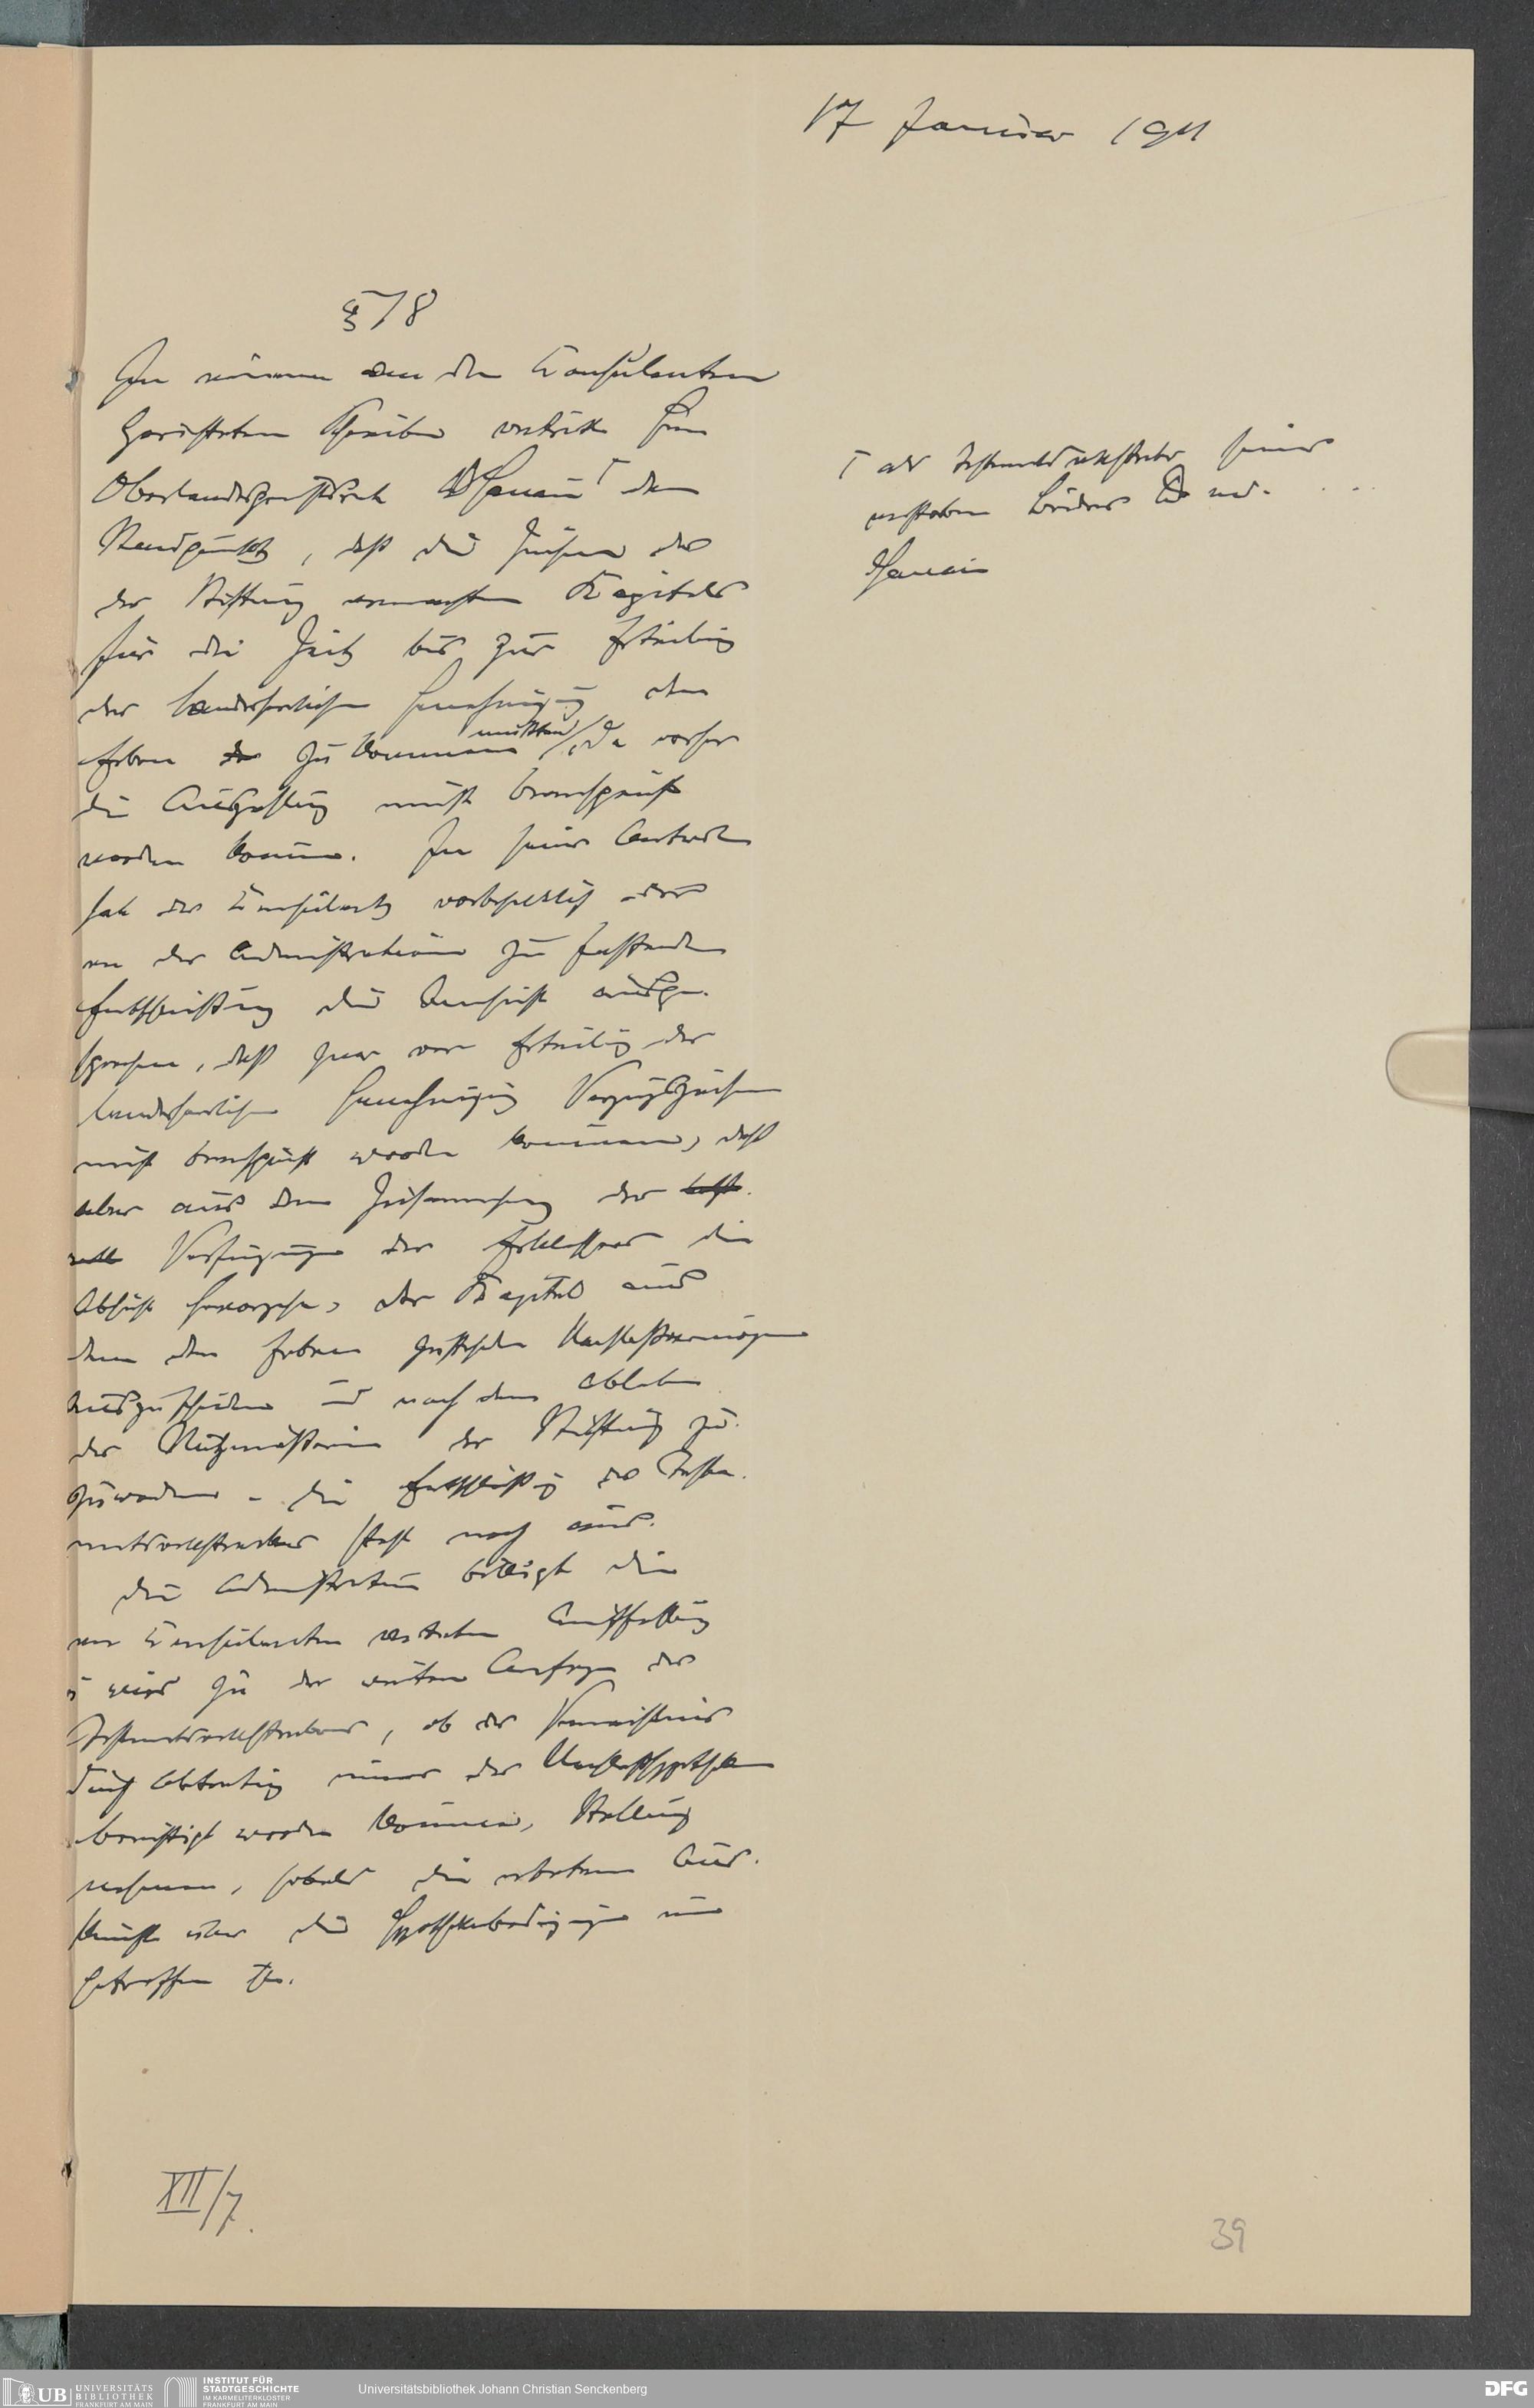 17 Januar 1911
§ 78
In einem an den Konsulenten
gerichteten Schreiben vertritt Herr
Oberlandesgerichtsrat Dr ⌈ den
Standpunkt, daß die Zinsen des
der Stiftung vermachten Kapitals
für die Zeit bis zur Erteilung
der landesherrlichen Genehmigung den
Erben zukommen müßten, da vorher
die Auszahlung nicht beansprucht
werden könne. In seiner Antwort
hat der Konsulent vorbehaltlich der
von der Administration zu fassenden
Entschließung die Ansicht ausge-
sprochen, daß zwar vor Erteilung der
landesherrlichen Genehmigung Verzugszinsen
nicht beansprucht werden können, daß
aber aus dem Zusammenhang der
Verfügungen des Erblassers die
Absicht hervorgehe, das Kapital aus
dem den Erben zustehenden Nachlaßvermögen
auszuscheiden und nach dem Ableben
der Nutznießerin der Stiftung zu-
zuwenden. Die Entschließung des Testa-
mentsvollstreckers steht noch aus.
Die Administration billigt die
vom Konsulenten vertretene Auffassung
u wird zu der weiteren Anfrage des
Testamentsvollstreckers, ob das Vermächtnis
durch Abtretung einer der Nachlaßhypotheken
berichtigt werden könne, Stellung
nehmen, sobald die erbetene Aus-
kunft über die Hypothekenbedingungen ein-
getroffen ist.
⌈ als Testamentsvollstrecker seines
verstorbenen Bruders Dr med. . . .
XII/7.
39
UB UNIVERSITÄTS
BIBLIOTHEK
FRANKFURT AM MAIN
INSTITUT FÜR
STADTGESCHICHTE
IM KARMELITERKLOSTER
FRANKFURT AM MAIN
Universitätsbibliothek Johann Christian Senckenberg
DFG